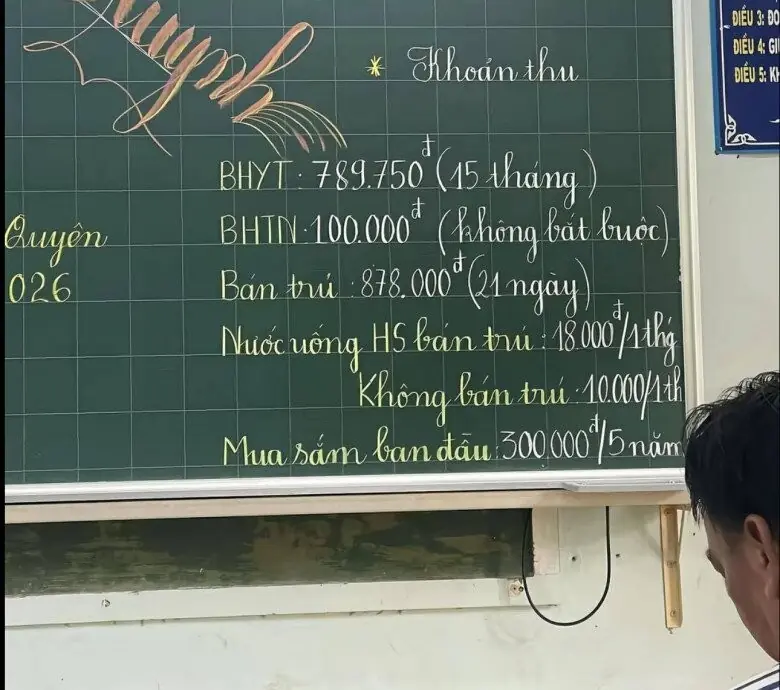 * Khoán thu
BHYT: 789.750đ (15 tháng)
BHTN: 100.000đ (không bắt buộc)
Quyên
026
Bán trú: 878.000đ (21 ngày)
Nước uống HS bán trú: 18.000đ/1thg
Không bán trú: 10.000/1th
Mua sắm ban đầu: 300.000đ/5 năm
ĐIỀU 3:
ĐIỀU 4:
ĐIỀU 5: